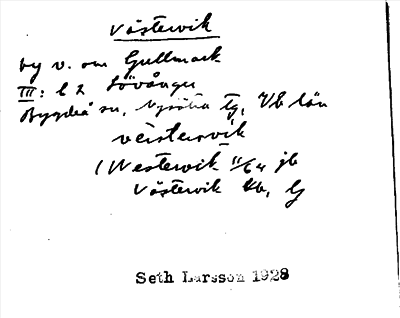 Västervik
by v. om Gullmark
III: l 2 Lövånger
Bygdeå sn, Nysätra tg, Vb län
vèistervik
(Westervik 11/64 jb
Västervik kb, G
Seth Larsson 1928